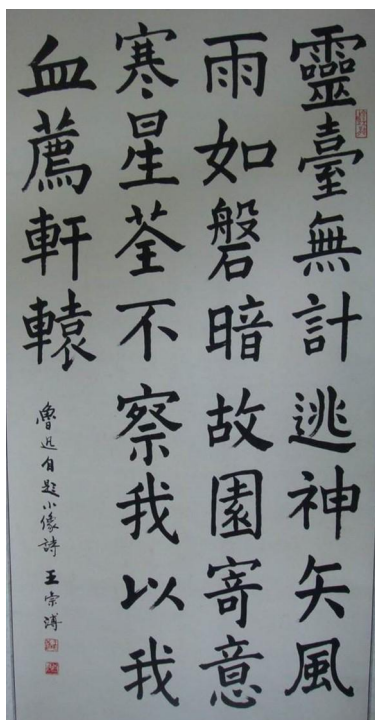 靈臺無計逃神矢風
雨如磐暗故園寄意
寒星荃不察我以我
血薦軒轅
魯迅自題小像詩 王崇溥